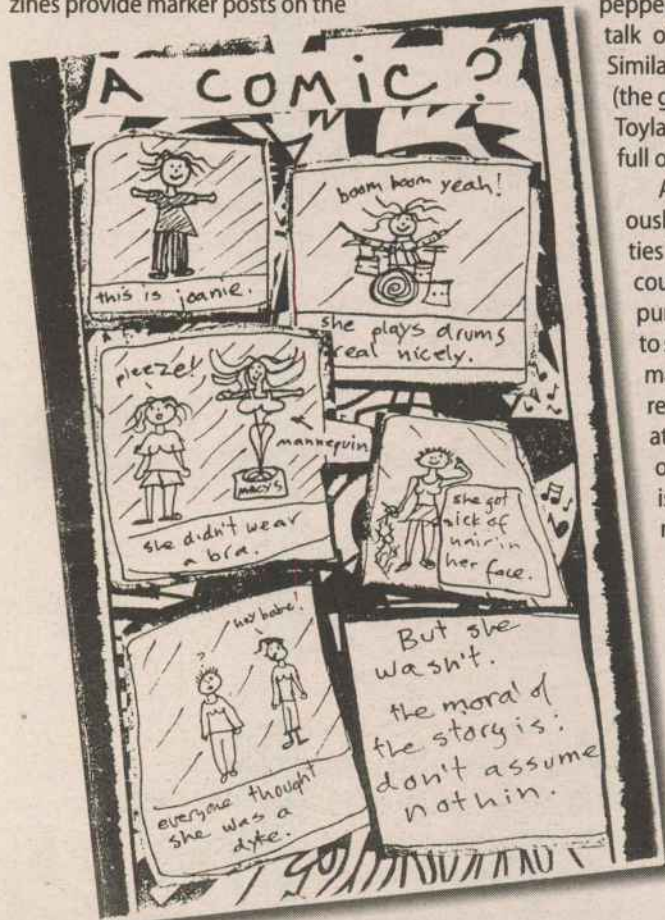 zines provide marker posts on the
A COMIC?
this is joanie.
boom boom yeah!
she plays drums
real nicely.
pleeze!
mannequin
MACYS
she didn't wear
a bra.
she got
sick of
hair in
her face.
?
hey babe!
everyone thought
she was a
dyke.
But she
wasn't.
the moral of
the story is:
don't assume
nothin.
talk o
Simila
(the g
Toyla
full o
A
ous
ties
cou
pu
to
ma
re
at
o
i